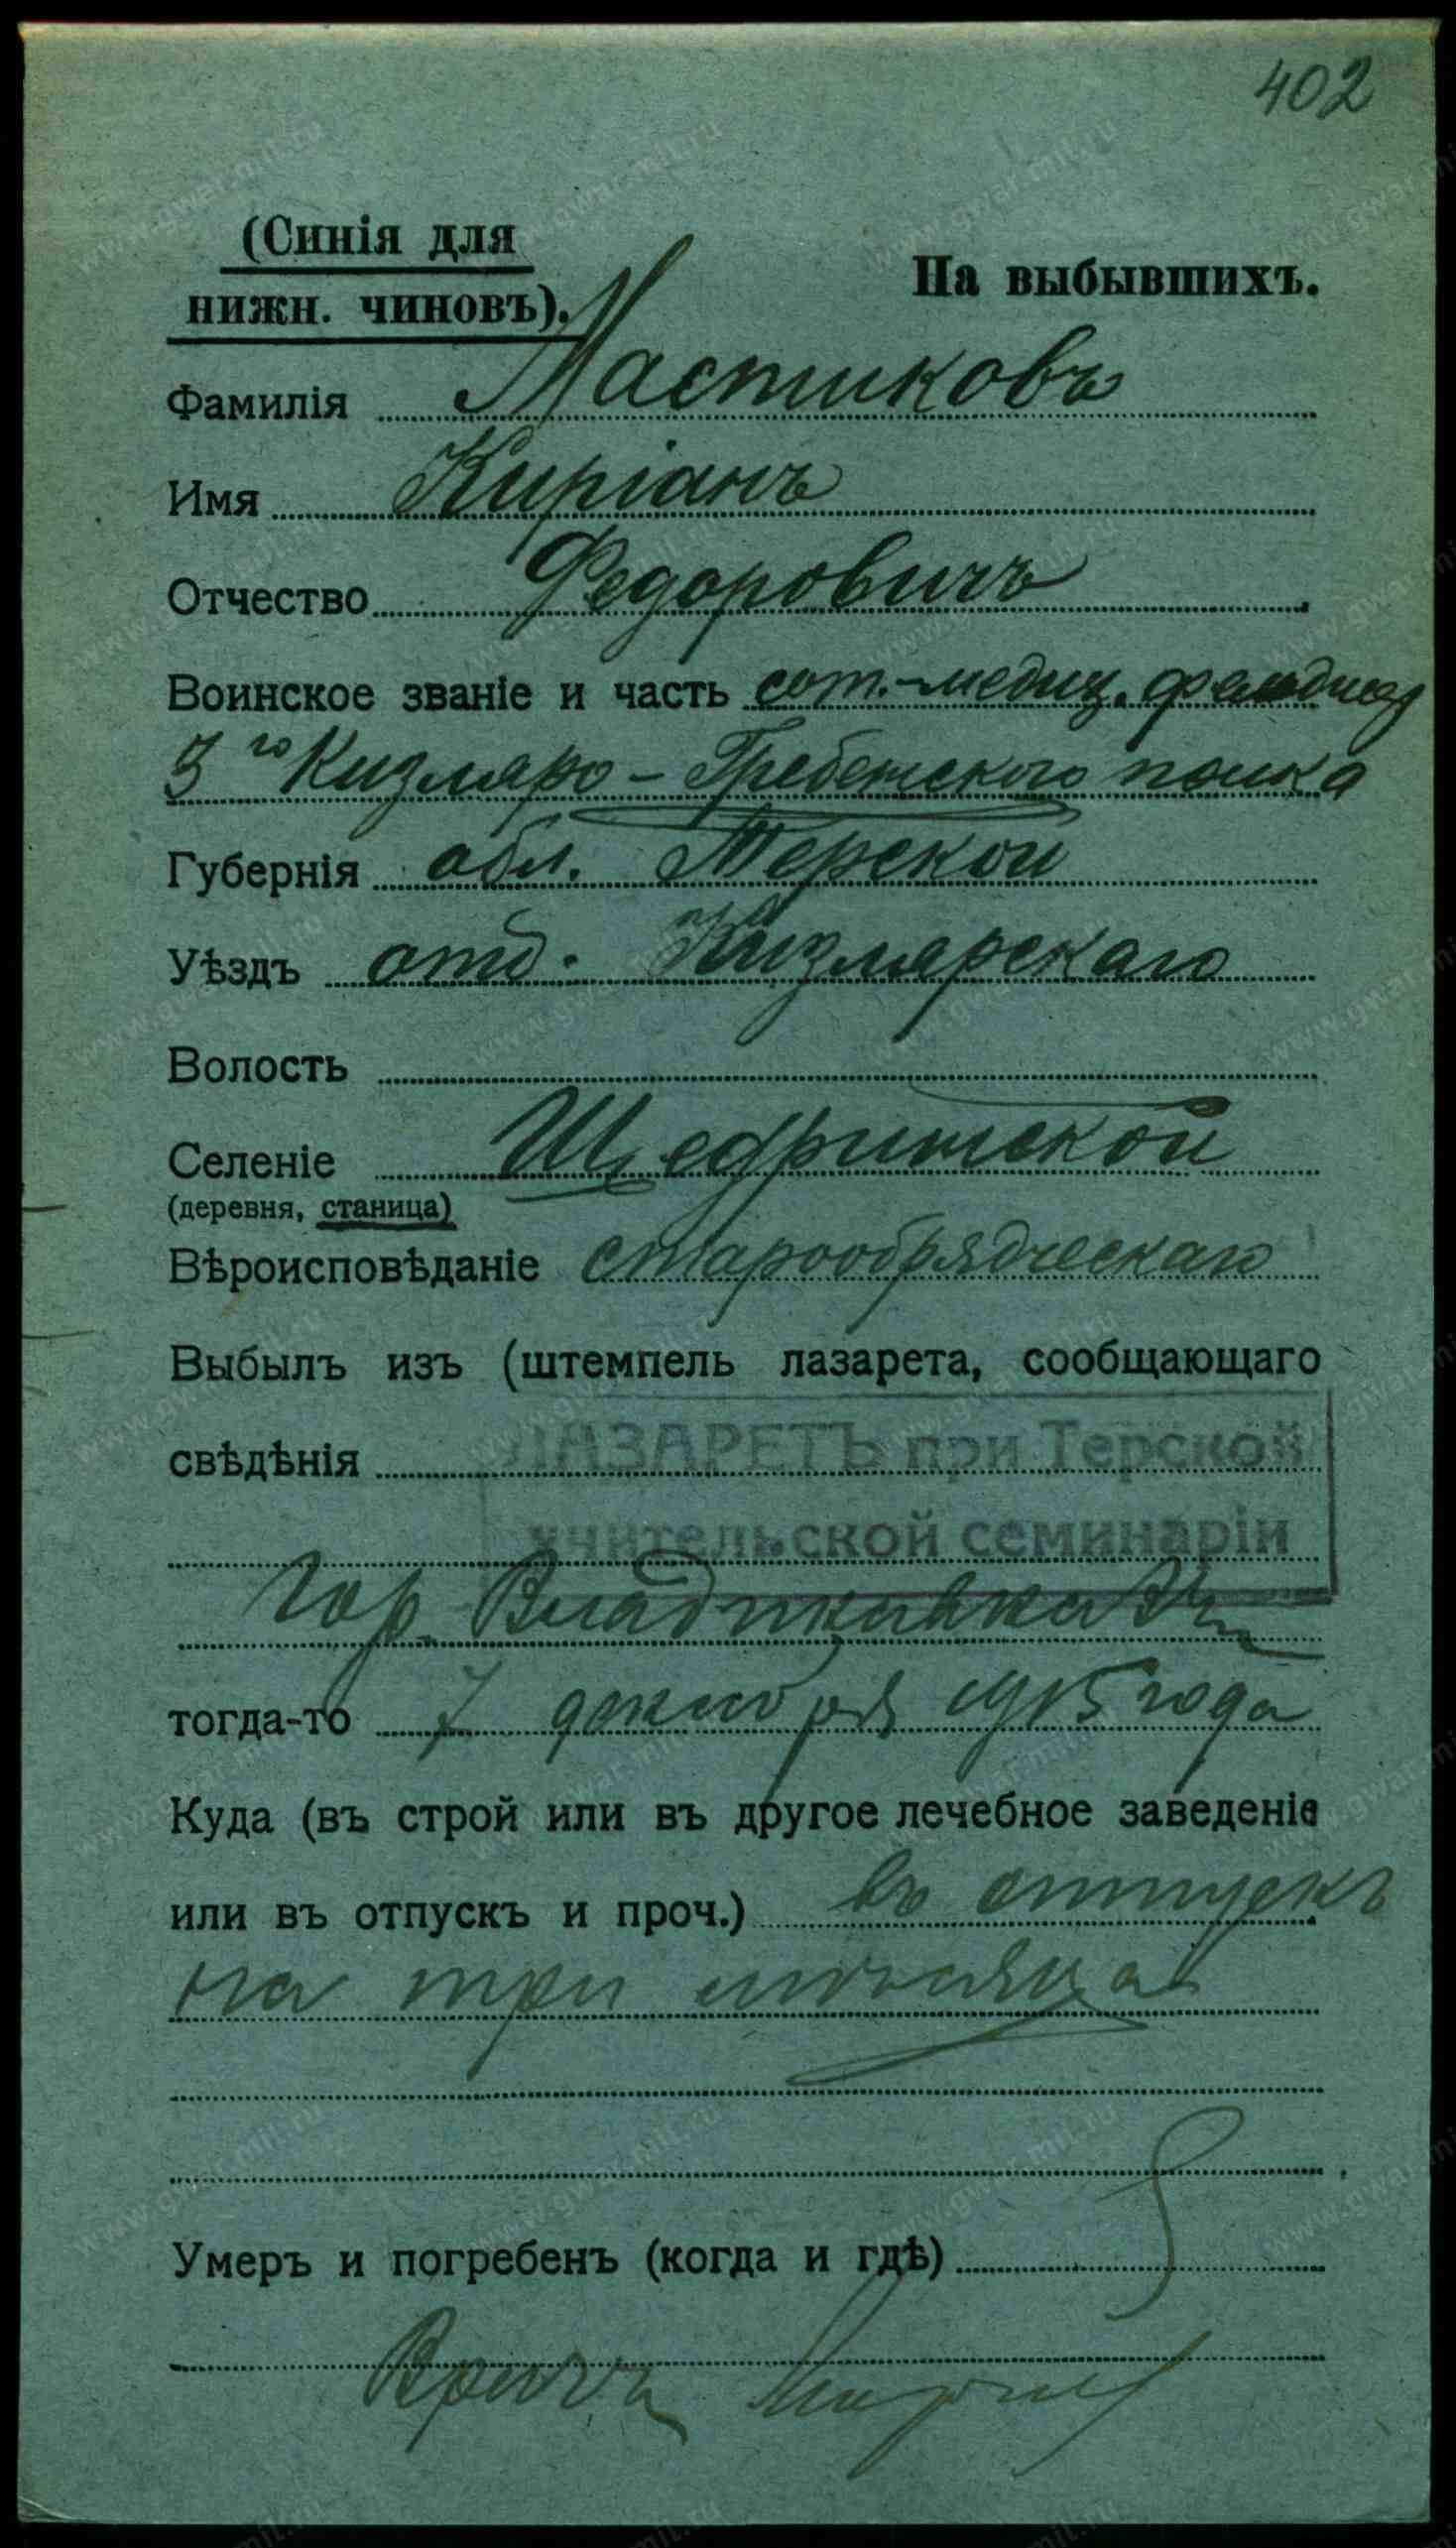 402
(Синія для
нижн. чиновъ).
На выбывшихъ.
Фамилія Мастиковъ
Имя Киріанъ
Отчество Федоровичъ
Воинское званіе и часть сот.-медиц. фельдшер
3го Кизляро-Гребенского полка
Губернія обл. Терской
Уѣздъ отд. Кизлярскаго
Волость
Селеніе Щедринской
(деревня, станица)
Вѣроисповѣданіе старообрядческаго
Выбылъ изъ (штемпель лазарета, сообщающаго
свѣдѣнія ЛАЗАРЕТЪ при Терской
учительской семинаріи
гор. Владикавказъ
тогда-то 7 декабря 1915 года
Куда (въ строй или въ другое лечебное заведеніе
или въ отпускъ и проч.) въ отпускъ
на три мѣсяца
Умеръ и погребенъ (когда и гдѣ)
Врачъ